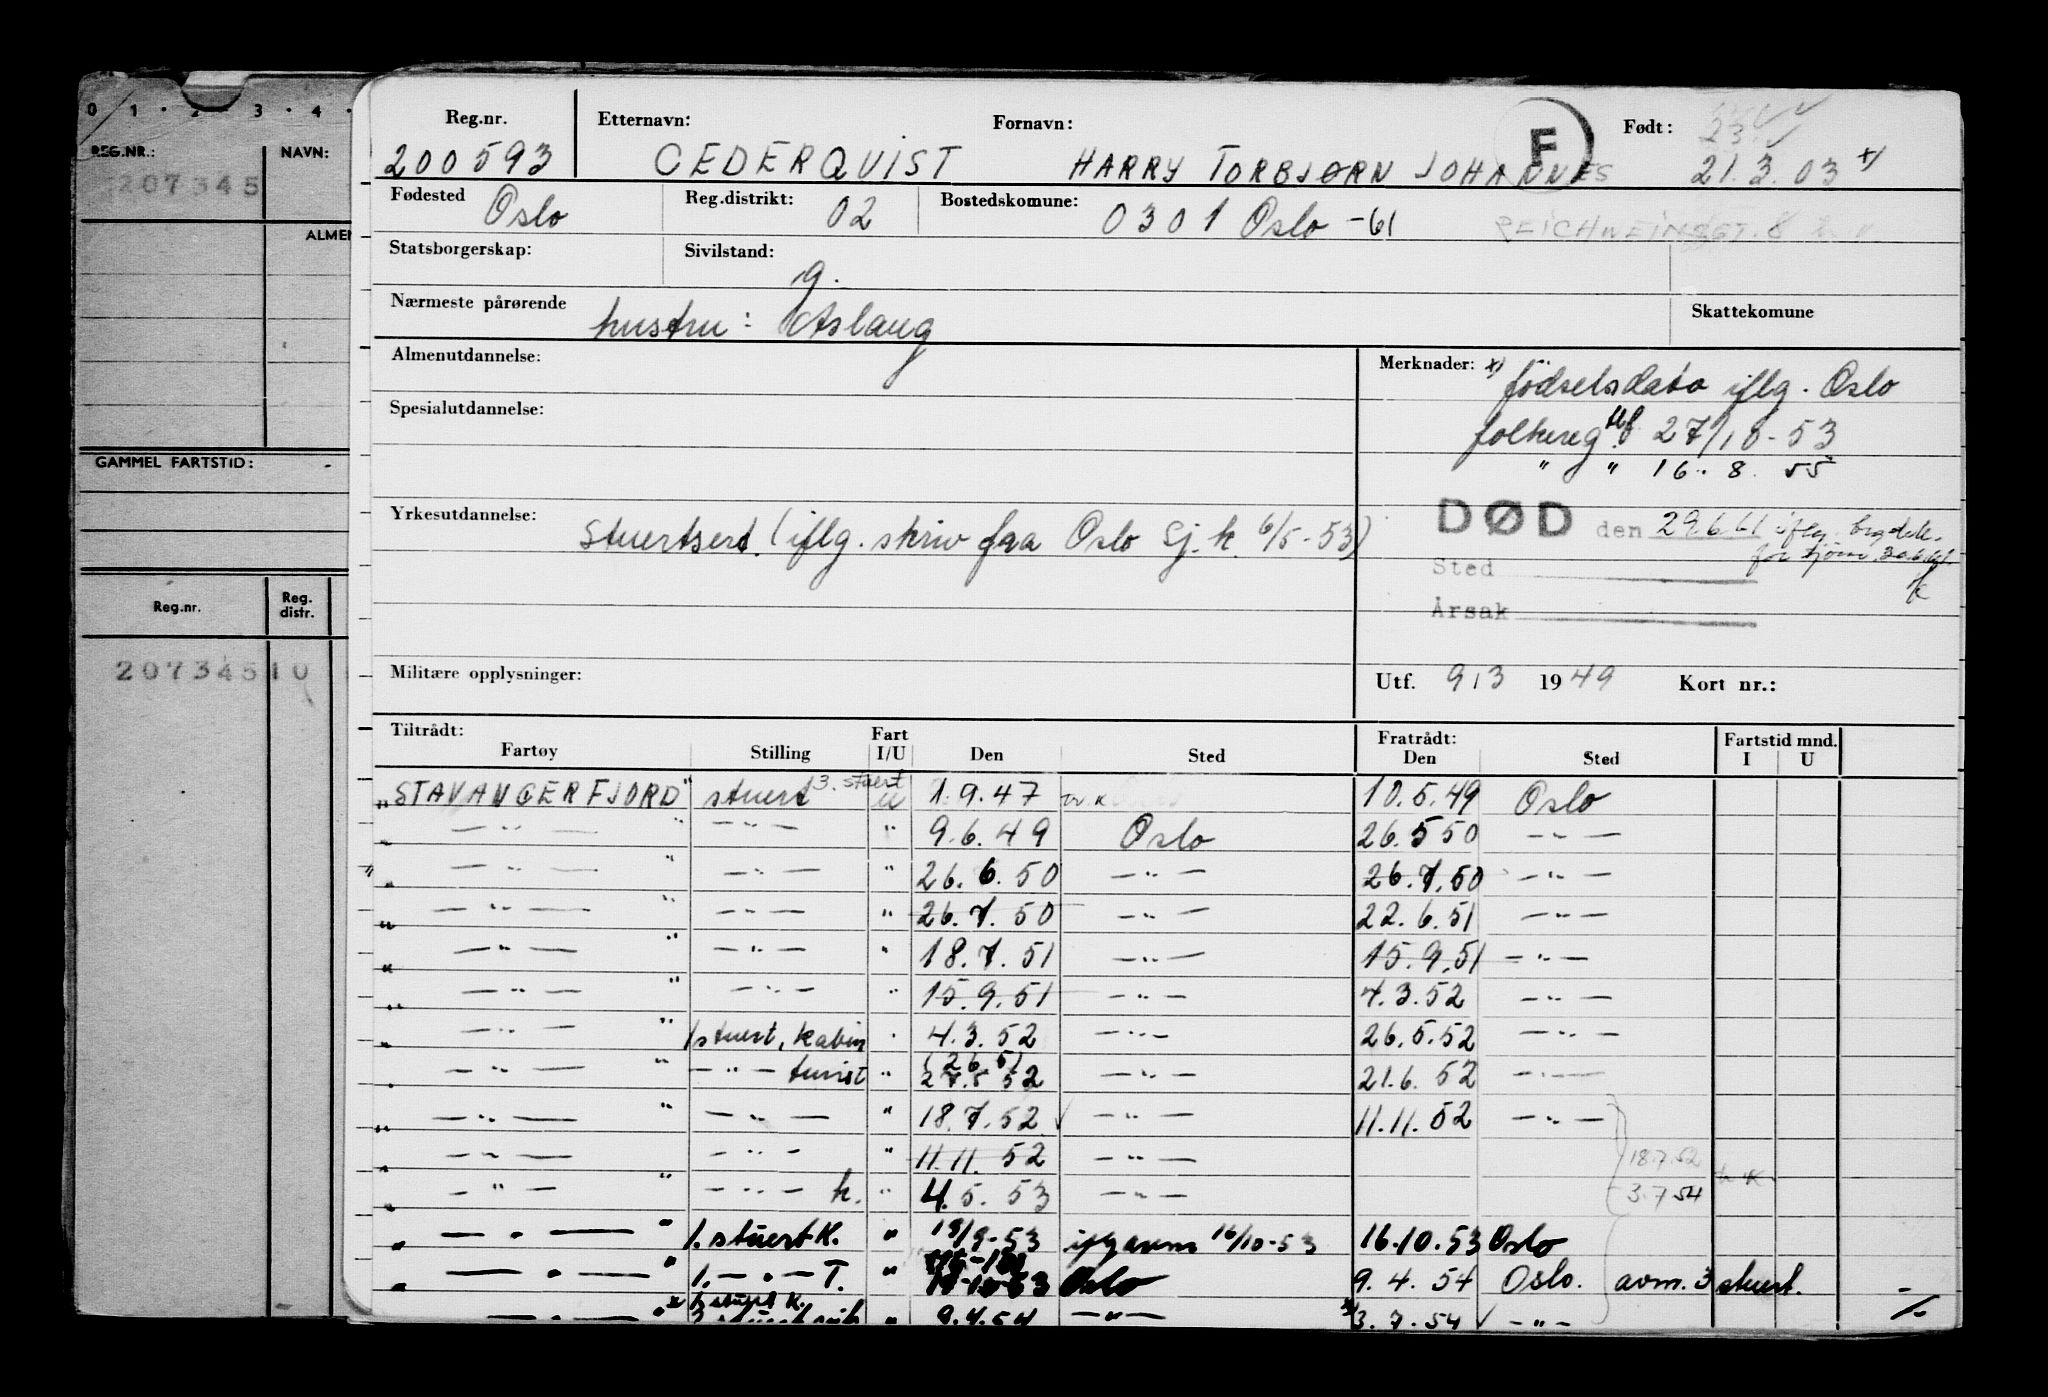 0 1 · 2 · 3 · 4 ·
REG.NR.: NAVN:
207345
ALMEN
GAMMEL FARTSTID: -
Reg.nr. Reg. distr.
207345 10
Reg.nr. Etternavn: Fornavn: F Født: 23.
200593 CEDERQVIST HARRY TORBJØRN JOHANNES 21.3.03 x)
Fødested Oslo Reg.distrikt: 02 Bostedskomune: 0301 Oslo -61 REICHWEINSGT. 8
Statsborgerskap: Sivilstand: g.
Nærmeste pårørende hustru: Aslaug Skattekomune
Almenutdannelse: Merknader: x) fødselsdato iflg. Oslo
Spesialutdannelse: folkereg. 27/10-53
" " 16.8.55
Yrkesutdannelse: Stuertsert. (iflg. skriv fra Oslo Sj.k. 6/5-53)
DØD den 29.6.61 iflg.
Sted
Årsak
Militære opplysninger: Utf. 9/3 1949 Kort nr.:
Tiltrådt: Fart Fratrådt: Fartstid mnd.
Fartøy Stilling I/U Den Sted Den Sted I U
"STAVANGERFJORD" stuert 3. stuert u 1.9.47 10.5.49 Oslo
" — " — " — " — " 9.6.49 Oslo 26.5.50 — " —
" — " — " — " — " 26.6.50 — " — 26.7.50 — " —
" — " — " — " — " 26.7.50 — " — 22.6.51 — " —
" — " — " — " — " 18.7.51 — " — 15.9.51 — " —
" — " — " — " — " 15.9.51 — " — 4.3.52 — " —
" — " — " 1 stuert, kabin " 4.3.52 — " — 26.5.52 — " —
" — " — " — " — turist (26.5) 27.5.52 — " — 21.6.52 — " —
" — " — " — " — " 18.7.52 ✓ — " — 11.11.52 — " —
" — " — — " — " 11.11.52 — " — 18.7.52
— " — " — " — k. " 4.5.53 — " — 3.7.54
" — " — " 1. stuert K. " 18/9-53 16/10-53 16.10.53 Oslo
" — " — " 1. — " — T. " Oslo 9.4.54 Oslo. avm. 3 stuert. -
— " — " x 1. stuert K. " 9.4.54 — " — x 3.7.54 ✓ — " —